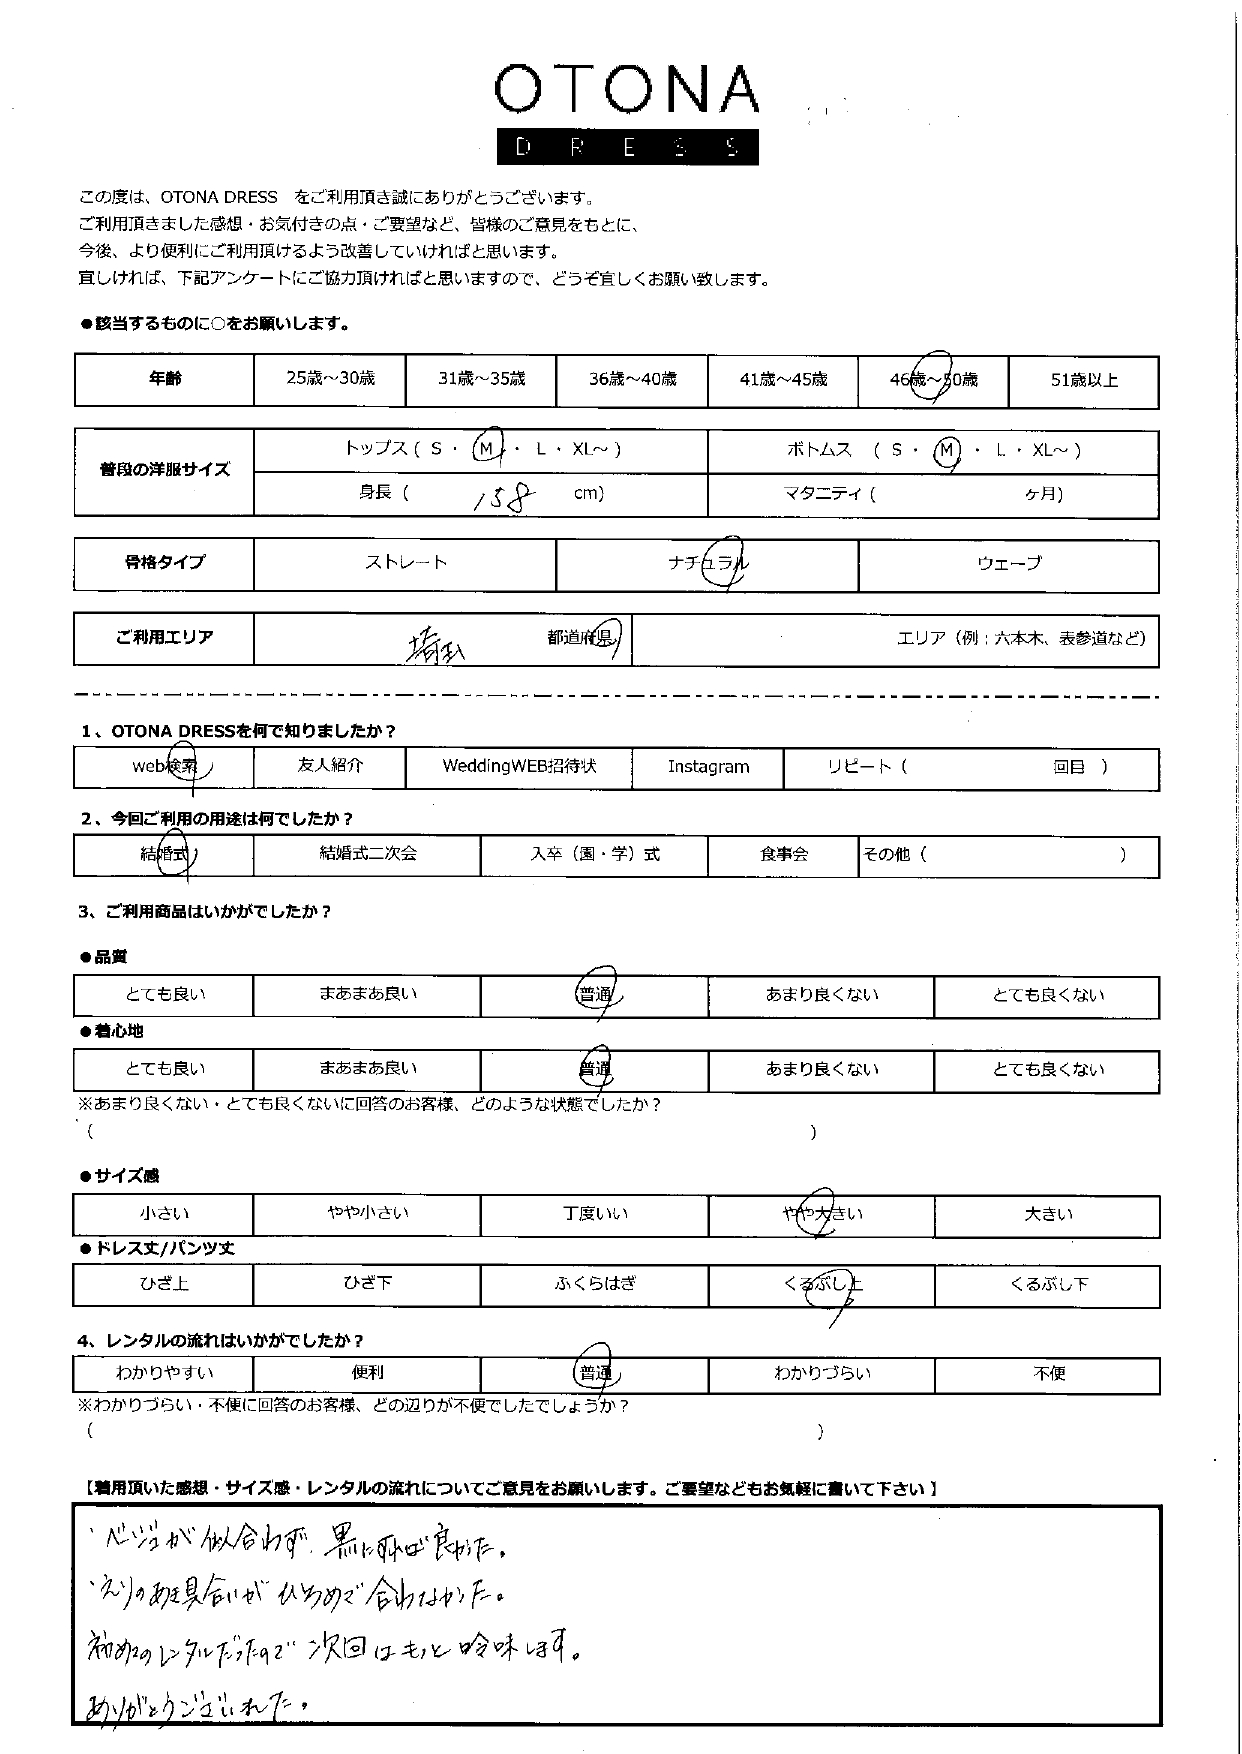 OTONA
DRESS
この度は、OTONA DRESS　をご利用頂き誠にありがとうございます。
ご利用頂きました感想・お気付きの点・ご要望など、皆様のご意見をもとに、
今後、より便利にご利用頂けるよう改善していければと思います。
宜しければ、下記アンケートにご協力頂ければと思いますので、どうぞ宜しくお願い致します。
●該当するものに○をお願いします。
年齢 25歳～30歳 31歳～35歳 36歳～40歳 41歳～45歳 46歳～50歳 51歳以上
普段の洋服サイズ トップス ( S ・ M ・ L ・ XL～ ) ボトムス ( S ・ M ・ L ・ XL～ )
身長 ( 158 cm) マタニティ ( ヶ月)
骨格タイプ ストレート ナチュラル ウェーブ
ご利用エリア 埼玉 都道府県 エリア（例：六本木、表参道など）
1、OTONA DRESSを何で知りましたか？
web検索 友人紹介 WeddingWEB招待状 Instagram リピート ( 回目 )
2、今回ご利用の用途は何でしたか？
結婚式 結婚式二次会 入卒（園・学）式 食事会 その他 ( )
3、ご利用商品はいかがでしたか？
●品質
とても良い まあまあ良い 普通 あまり良くない とても良くない
●着心地
とても良い まあまあ良い 普通 あまり良くない とても良くない
※あまり良くない・とても良くないに回答のお客様、どのような状態でしたか？
( )
●サイズ感
小さい やや小さい 丁度いい やや大きい 大きい
●ドレス丈/パンツ丈
ひざ上 ひざ下 ふくらはぎ くるぶし上 くるぶし下
4、レンタルの流れはいかがでしたか？
わかりやすい 便利 普通 わかりづらい 不便
※わかりづらい・不便に回答のお客様、どの辺りが不便でしたでしょうか？
( )
【着用頂いた感想・サイズ感・レンタルの流れについてご意見をお願いします。ご要望などもお気軽に書いて下さい】
・ベージュが似合わず、黒にすれば良かった。
・えりのあき具合いがひろめで合わなかった。
初めてのレンタルだったので次回はもっと吟味します。
ありがとうございました。